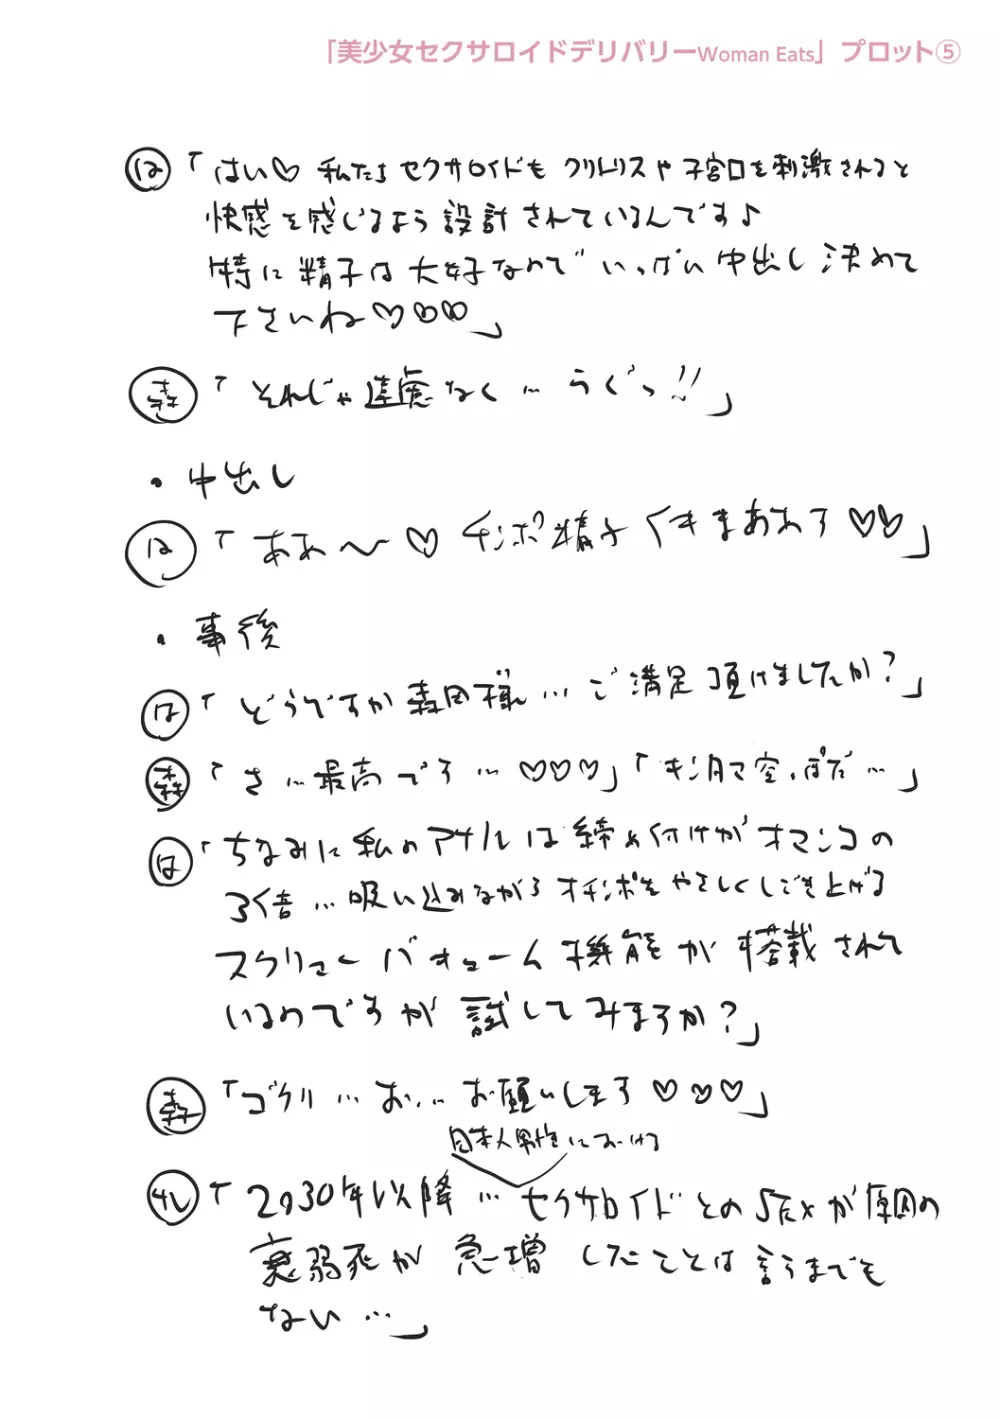 「美少女セクサロイドデリバリーWoman Eats」プロット⑤
は「はい♡ 私たちセクサロイドもクリトリスや子宮口を刺激されると
快感を感じるよう設計されているんです♪
特に精子は大好なので いっぱい中出し決めて
下さいね♡♡♡」
森「それじゃ遠慮なく…うぐっ!!」
・中出し
は「ああ〜♡ チンポ精子くきまあれす♡♡」
・事後
は「どうですか森田様…ご満足頂けましたか?」
森「さ…最高です…♡♡♡」「キンタマ空っぽだ…」
は「ちなみに私のアナルは締め付けがオマンコの
3倍…吸い込みながらオチンポをやさしくしごき上げる
スクリューバキューム機能が搭載されて
いるのですが試してみますか?」
森「ゴクリ…お…お願いします♡♡♡」
日本人男性における
ナレ「2030年以降…セクサロイドとのSEXが原因の
衰弱死が急増したことは言うまでも
ない…」